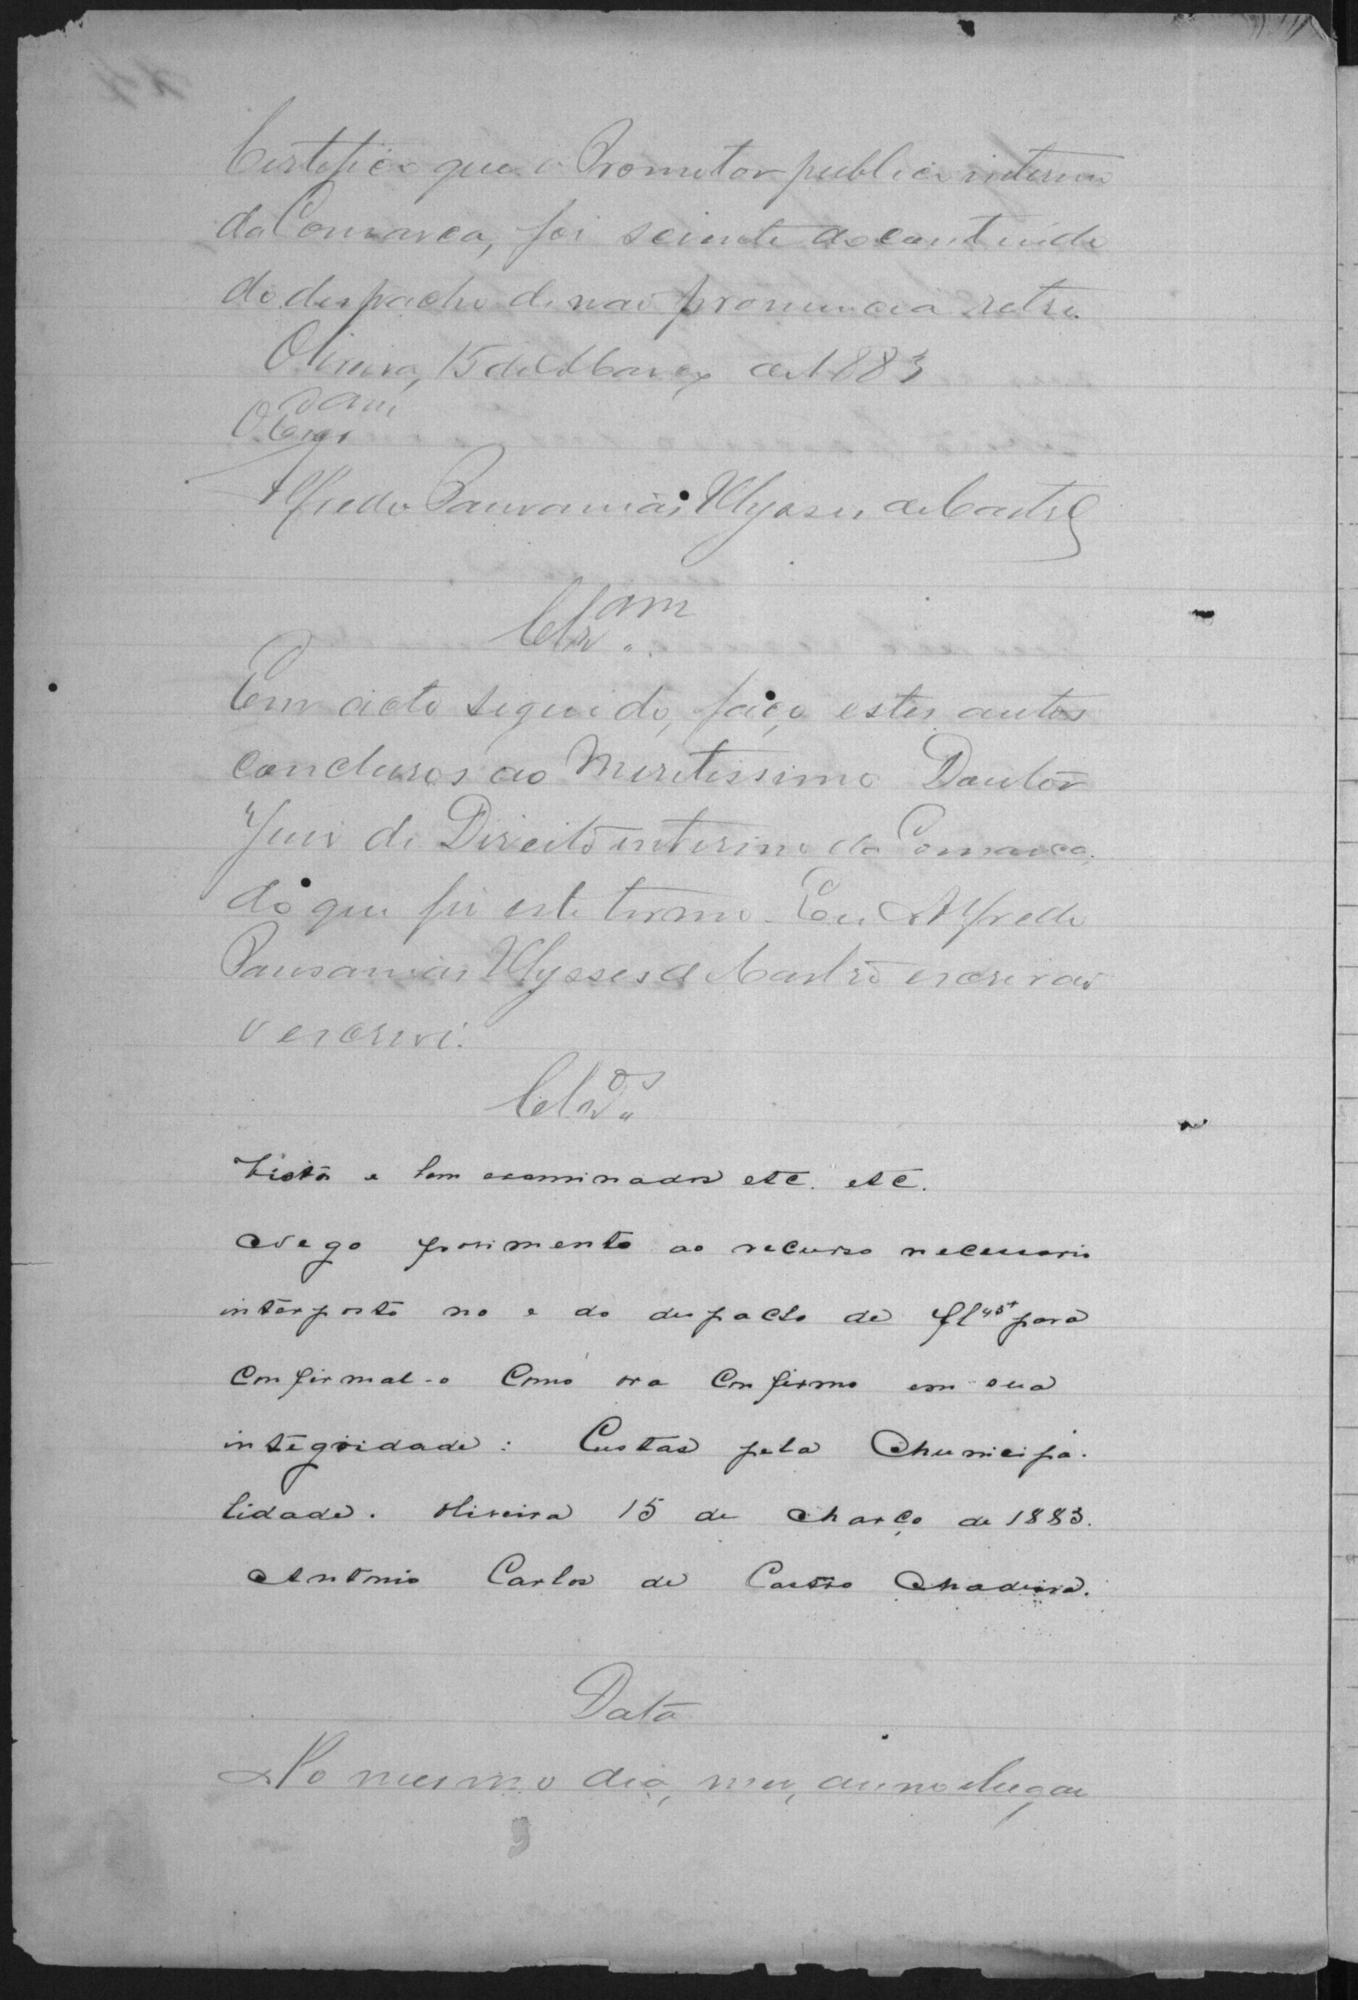 Certifico que o Promotor publico interino
da Comarca, foi sciente do contiudo
do despacho de não pronuncia retro.
Oliveira, 15 de Março de 1883
O Escr
Alfredo Pausanias Ulysses de Castro
Clsam
Em acto seguido, faço estes autos
conclusos ao Meretissimo Doutor
Juiz de Direito interino da Comarca,
do que fiz este termo. Eu Alfredo
Pausanias Ulysses de Castro escrivão
o escrevi.
Clsos
Visto e bem examinados etc. etc.
Nego provimento ao recurso necessario
interposto no e do despacho de fl para
confirmal-o como ora confirmo em sua
integridade: Custas pela Municipa-
lidade. Oliveira 15 de Março de 1883.
Antonio Carlos de Castro Madeira.
Data
No mesmo dia, mez, anno e lugar